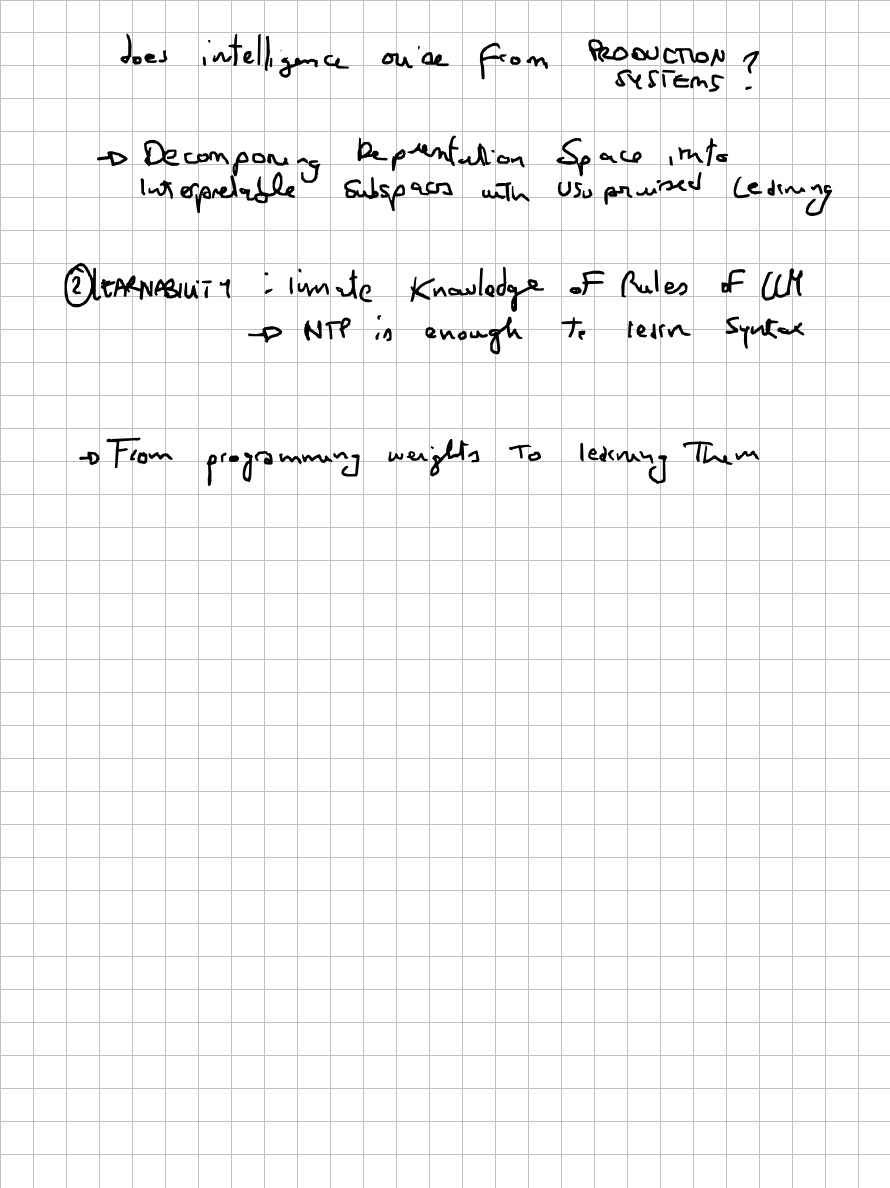 does intelligence arise from PRODUCTION
SYSTEMS ?
→ Decomposing Representation Space into
Interpretable Subspaces with Learning
② LEARNABILITY : Knowledge of Rules of LLM
→ NTP is enough to learn Syntax
→ From programming weights To learning Them